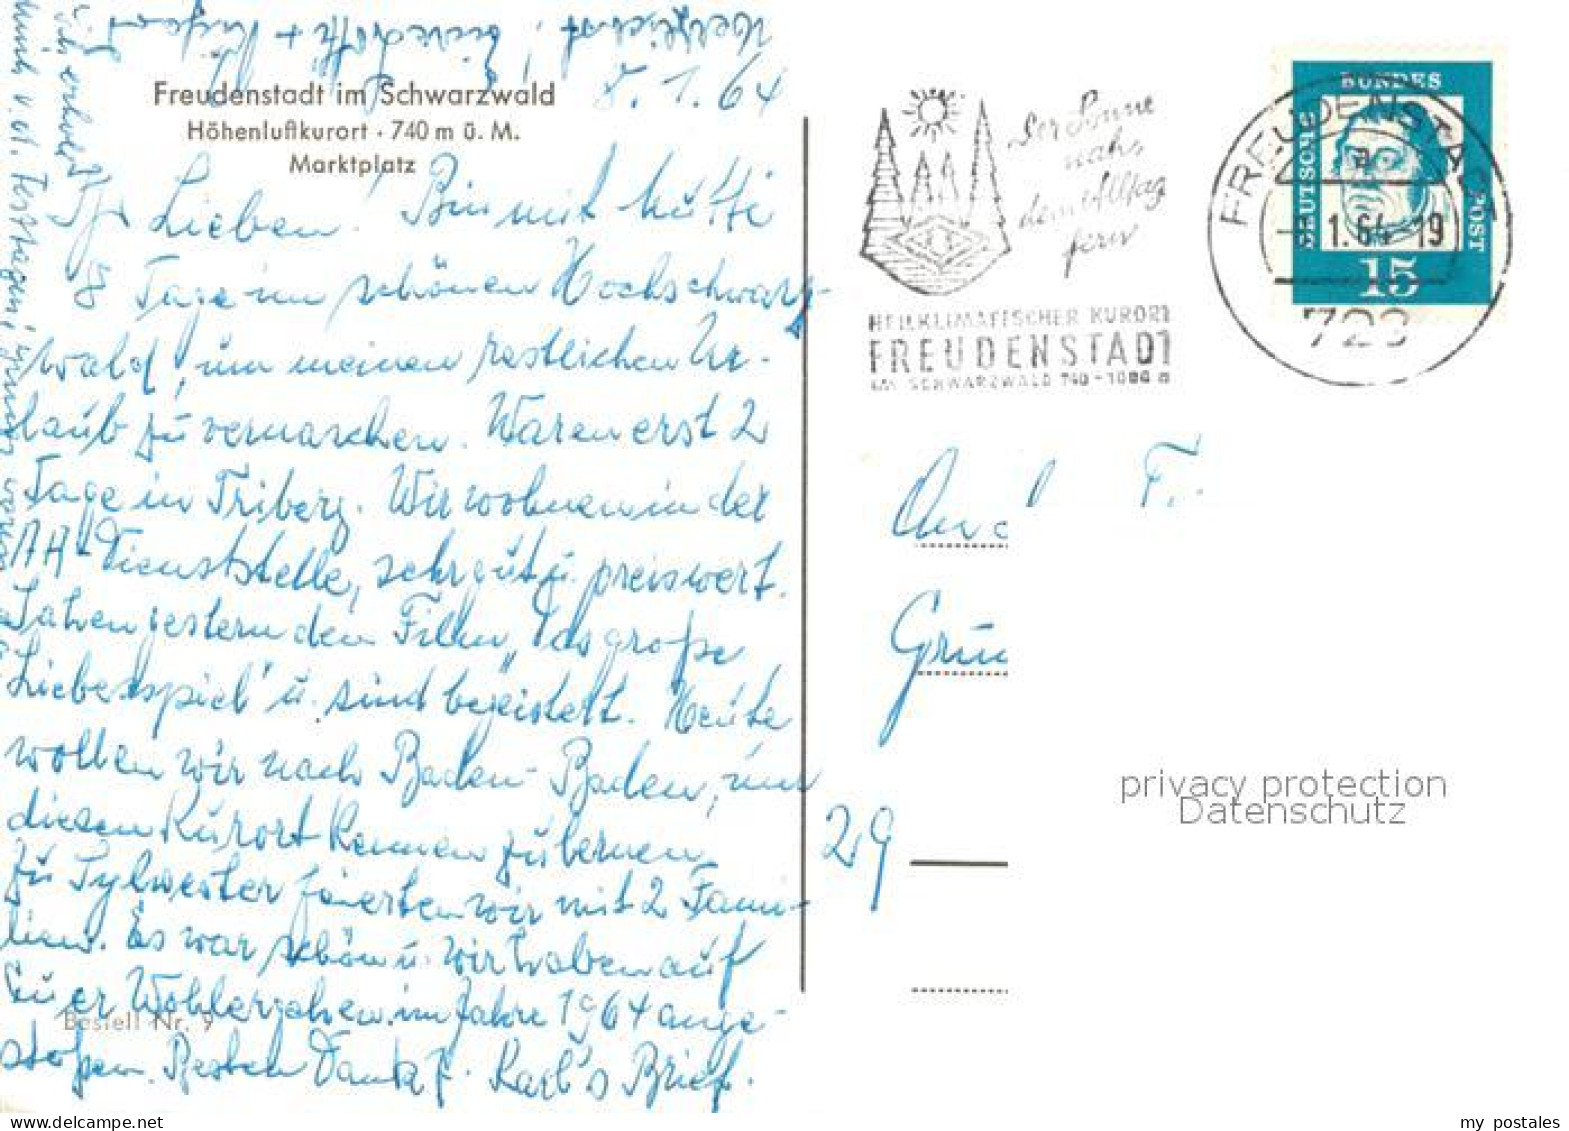 Freudenstadt im Schwarzwald
Höhenluftkurort · 740 m ü. M.
Marktplatz
8. 1. 64
Ihr Lieben! Bin mit Mutti
Tage im schönen Hochschwarz-
wald, um meinen restlichen Ur-
laub zu vernaschen. Waren erst 2
Tage in Triberg. Wir wohnen in der
AH-Dienststelle, sehr gut u. preiswert.
Sahen gestern den Film "das große
Liebesspiel" u. sind begeistert. Heute
wollen wir nach Baden-Baden, um
diesen Kurort kennen zu lernen,
Zu Sylwester feierten wir mit 2 Fami-
lien. Es war schön u. wir haben auf
Euer Wohlergehen im Jahre 1964 ange-
stoßen. Besten Dank f. Karl's Brief.
Bestell Nr. 9
Der Sonne
nah
dem Alltag
fern
HEILKLIMATISCHER KURORT
FREUDENSTADT
IM SCHWARZWALD 740-1000 m
FREUDENSTADT
a
1.64-19
723
DEUTSCHE
BUNDES
POST
15
29
privacy protection
Datenschutz
www.delcampe.net
my_postales